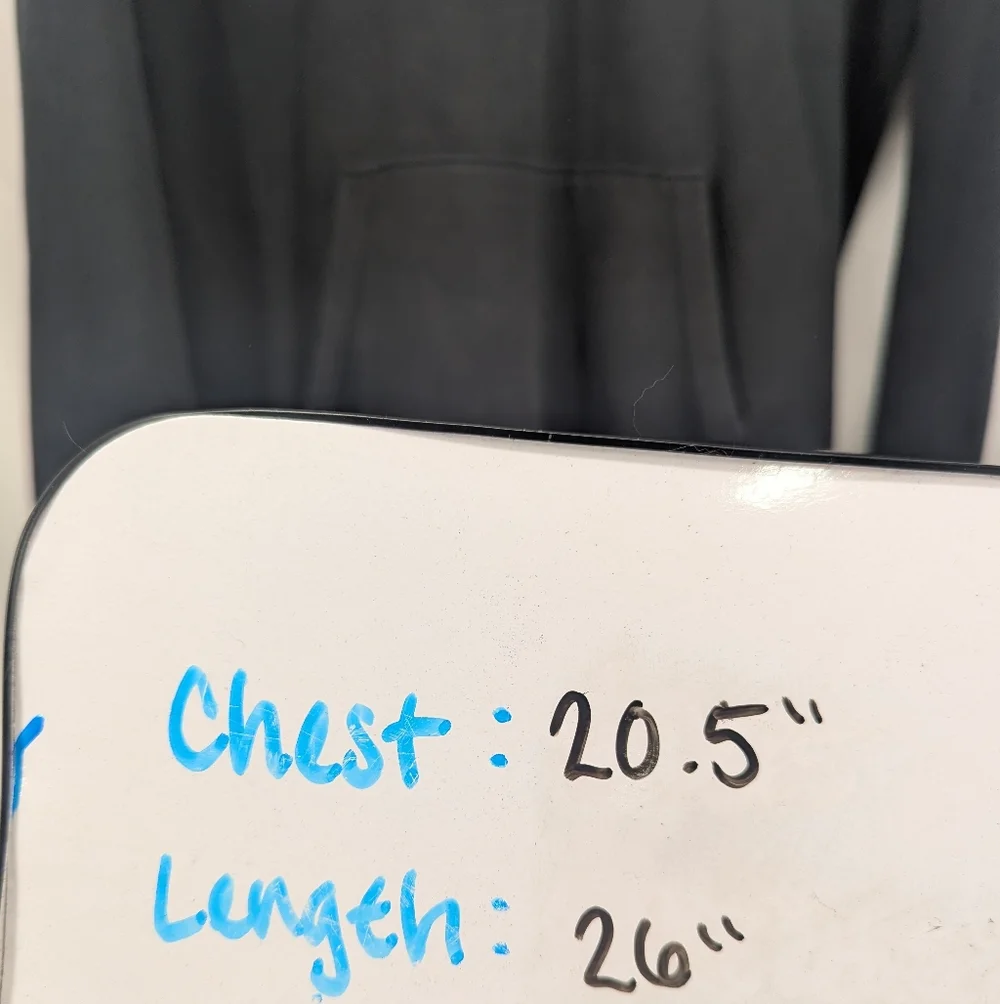 Chest: 20.5"
Length: 26"